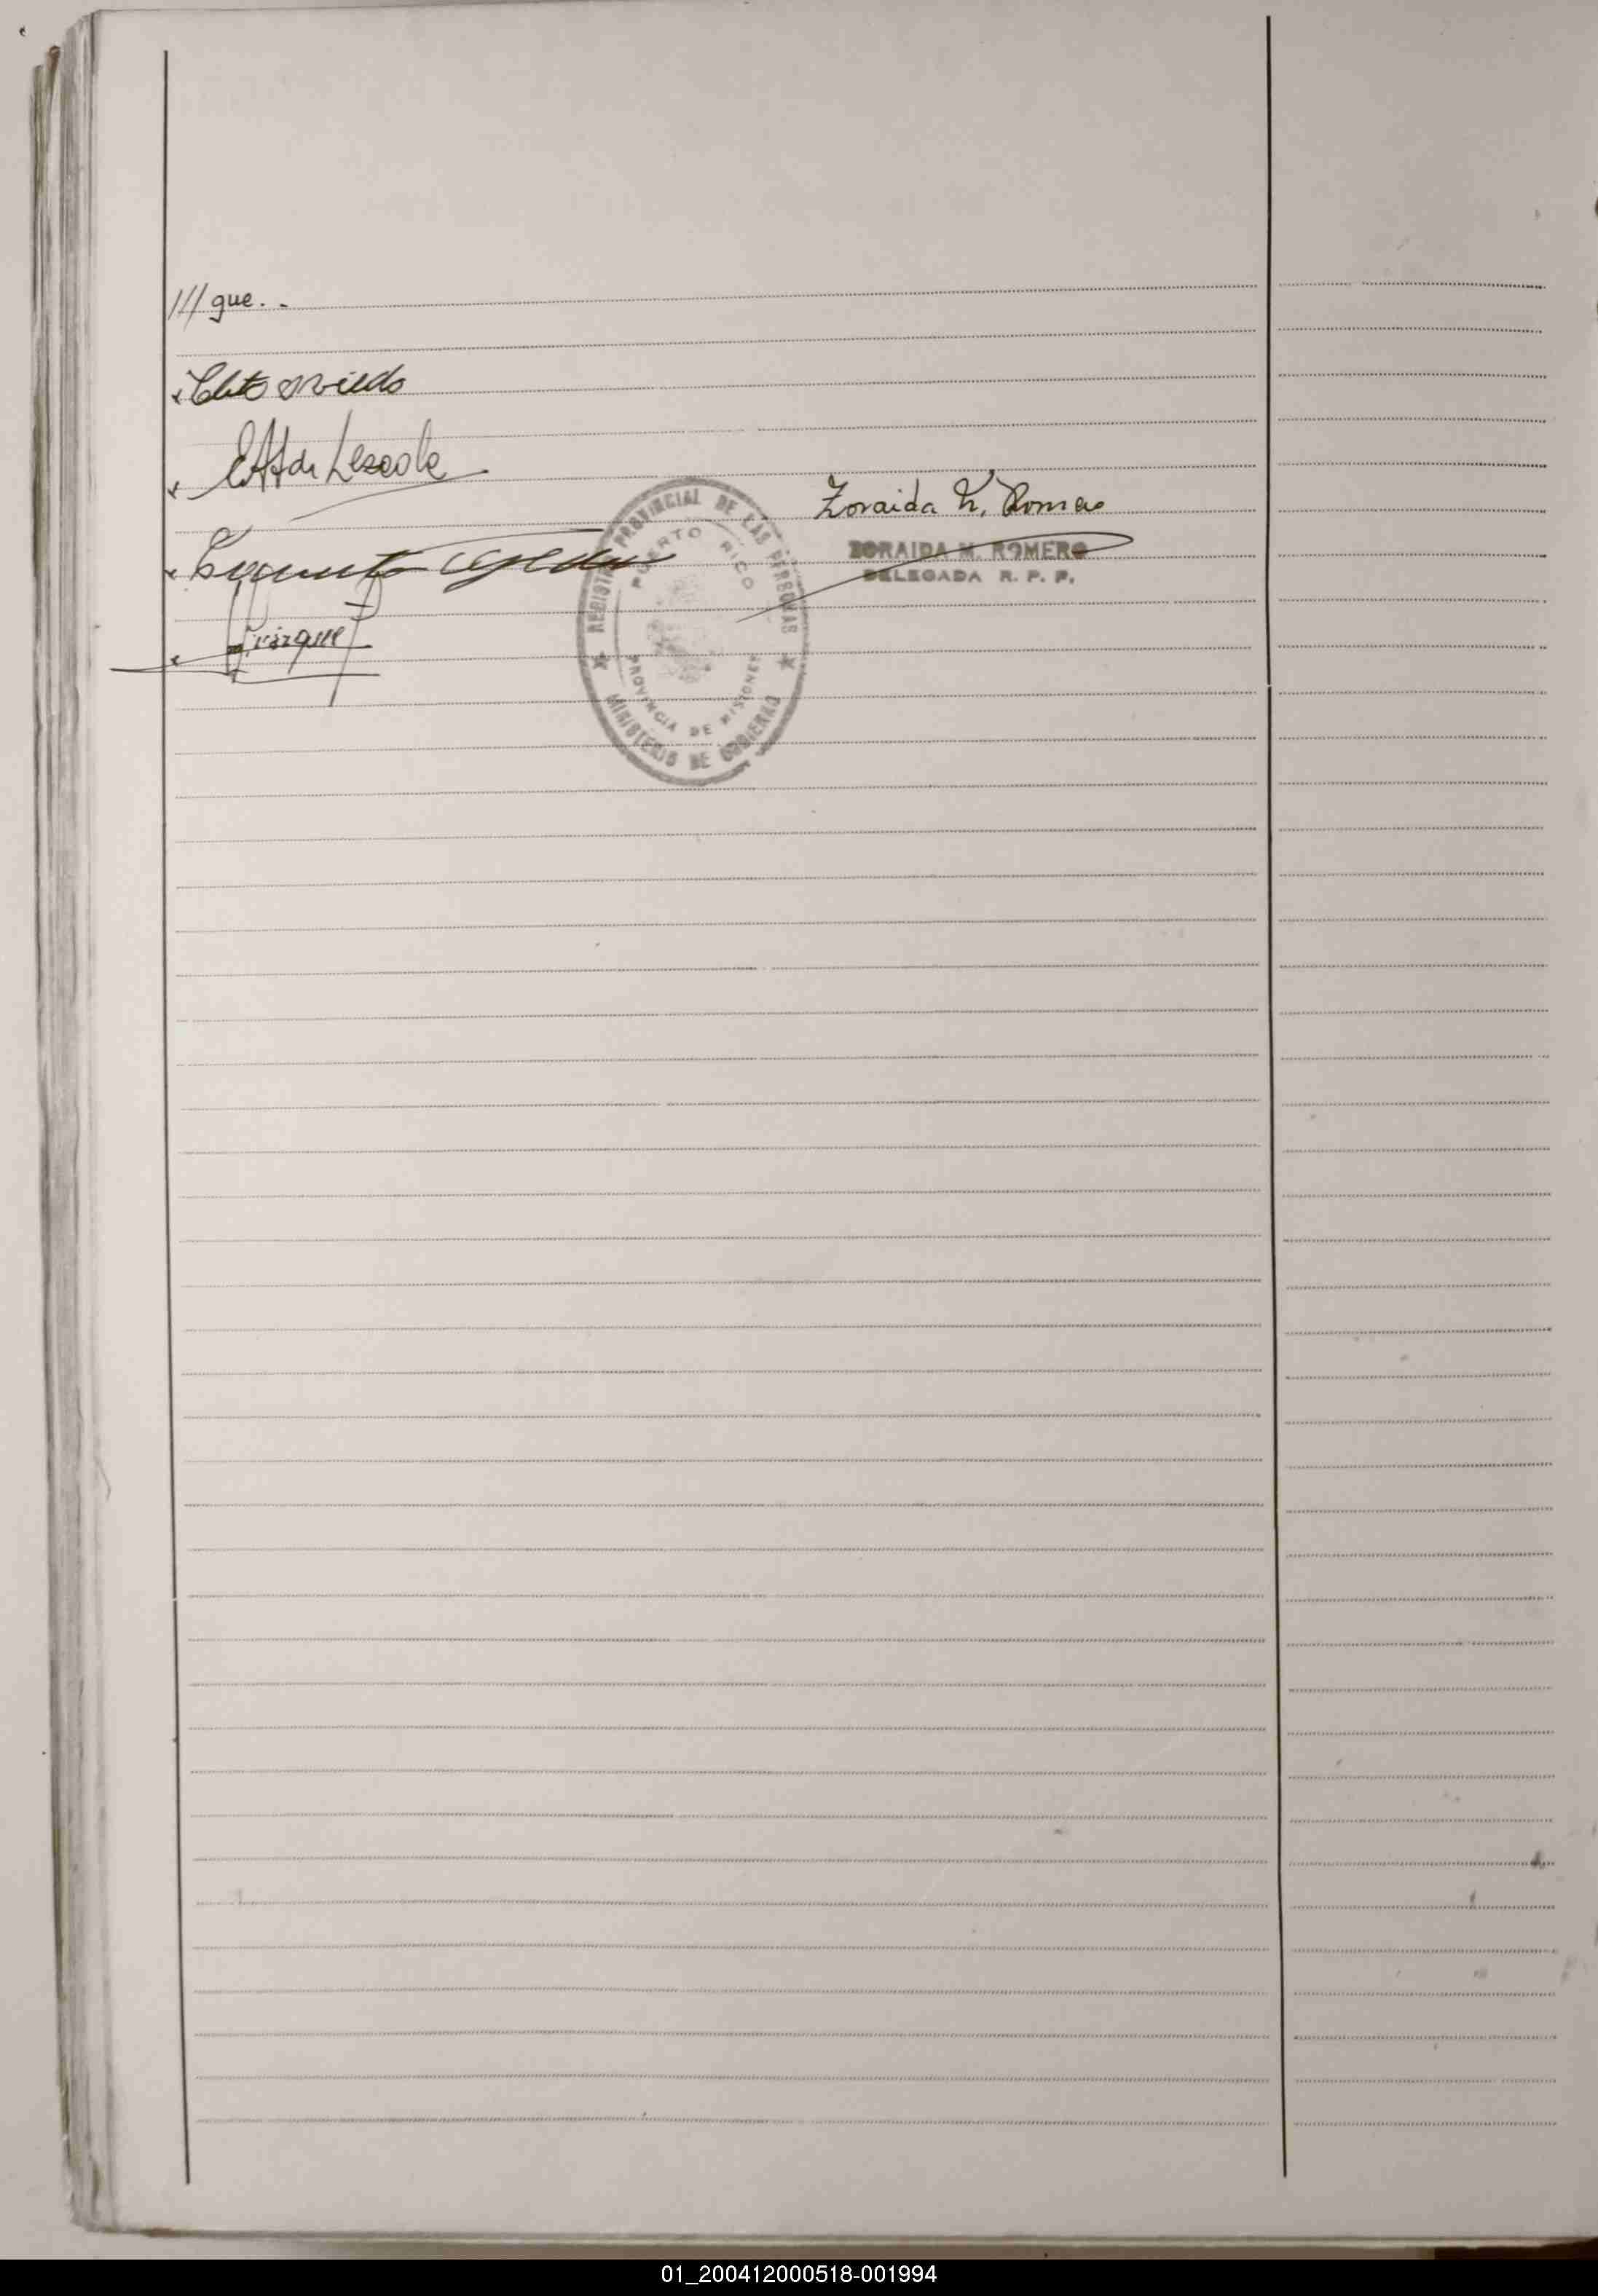 /// que. . -
Cleto Oviedo
Lezcole
Zoraida M. Romero
ZORAIDA M. ROMERO
DELEGADA R. P. P.
REGISTRO PROVINCIAL DE LAS PERSONAS
PUERTO RICO
PROVINCIA DE MISIONES
MINISTERIO DE GOBIERNO
01_200412000518-001994